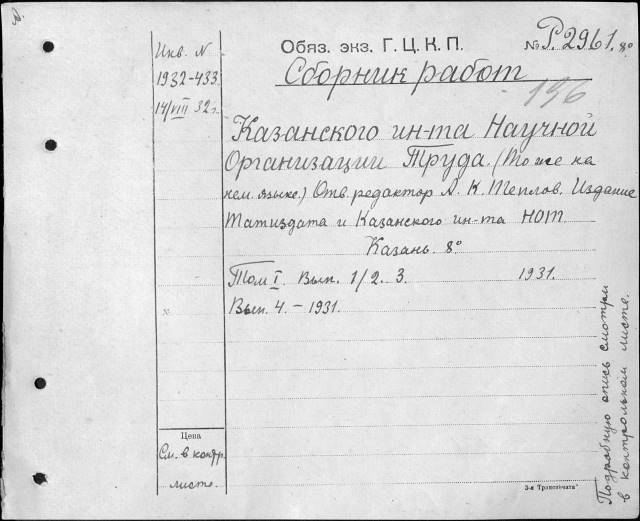 Инв. N
1932-433
14/VIII 32 г.
Обяз. экз. Г. Ц. К. П.
№ Р. 2961. 8º
Сборник работ
196
Казанского ин-та Научной
Организации Труда. (То же на
нем. языке.) Отв. редактор Л. К. Теплов. Издание
Татиздата и Казанского ин-та НОТ.
Казань. 8º
Том I. Вып. 1/2. 3. 1931.
№
Вып. 4. – 1931.
Цена
См. в контр.
листе.
3-я Транспечать"
Подробную опись смотри
в контрольном листе.